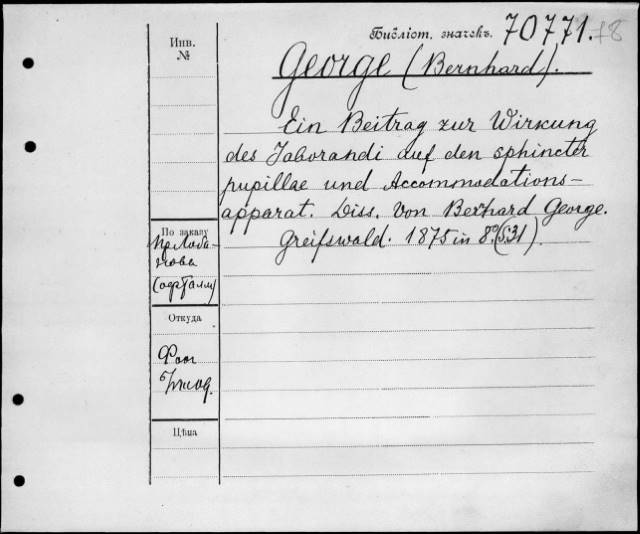 Библіот. значекъ. 70771. 78
Инв.
№
George (Bernhard).
Ein Beitrag zur Wirkung
des Jaborandi auf den sphincter
pupillae und Accommodations-
apparat. Diss. von Bernhard George.
Greifswald. 1875 in 8º. (S.31).
По заказу
Пр. Лоба-
нова
(офталм)
Откуда
Фок
Цѣна